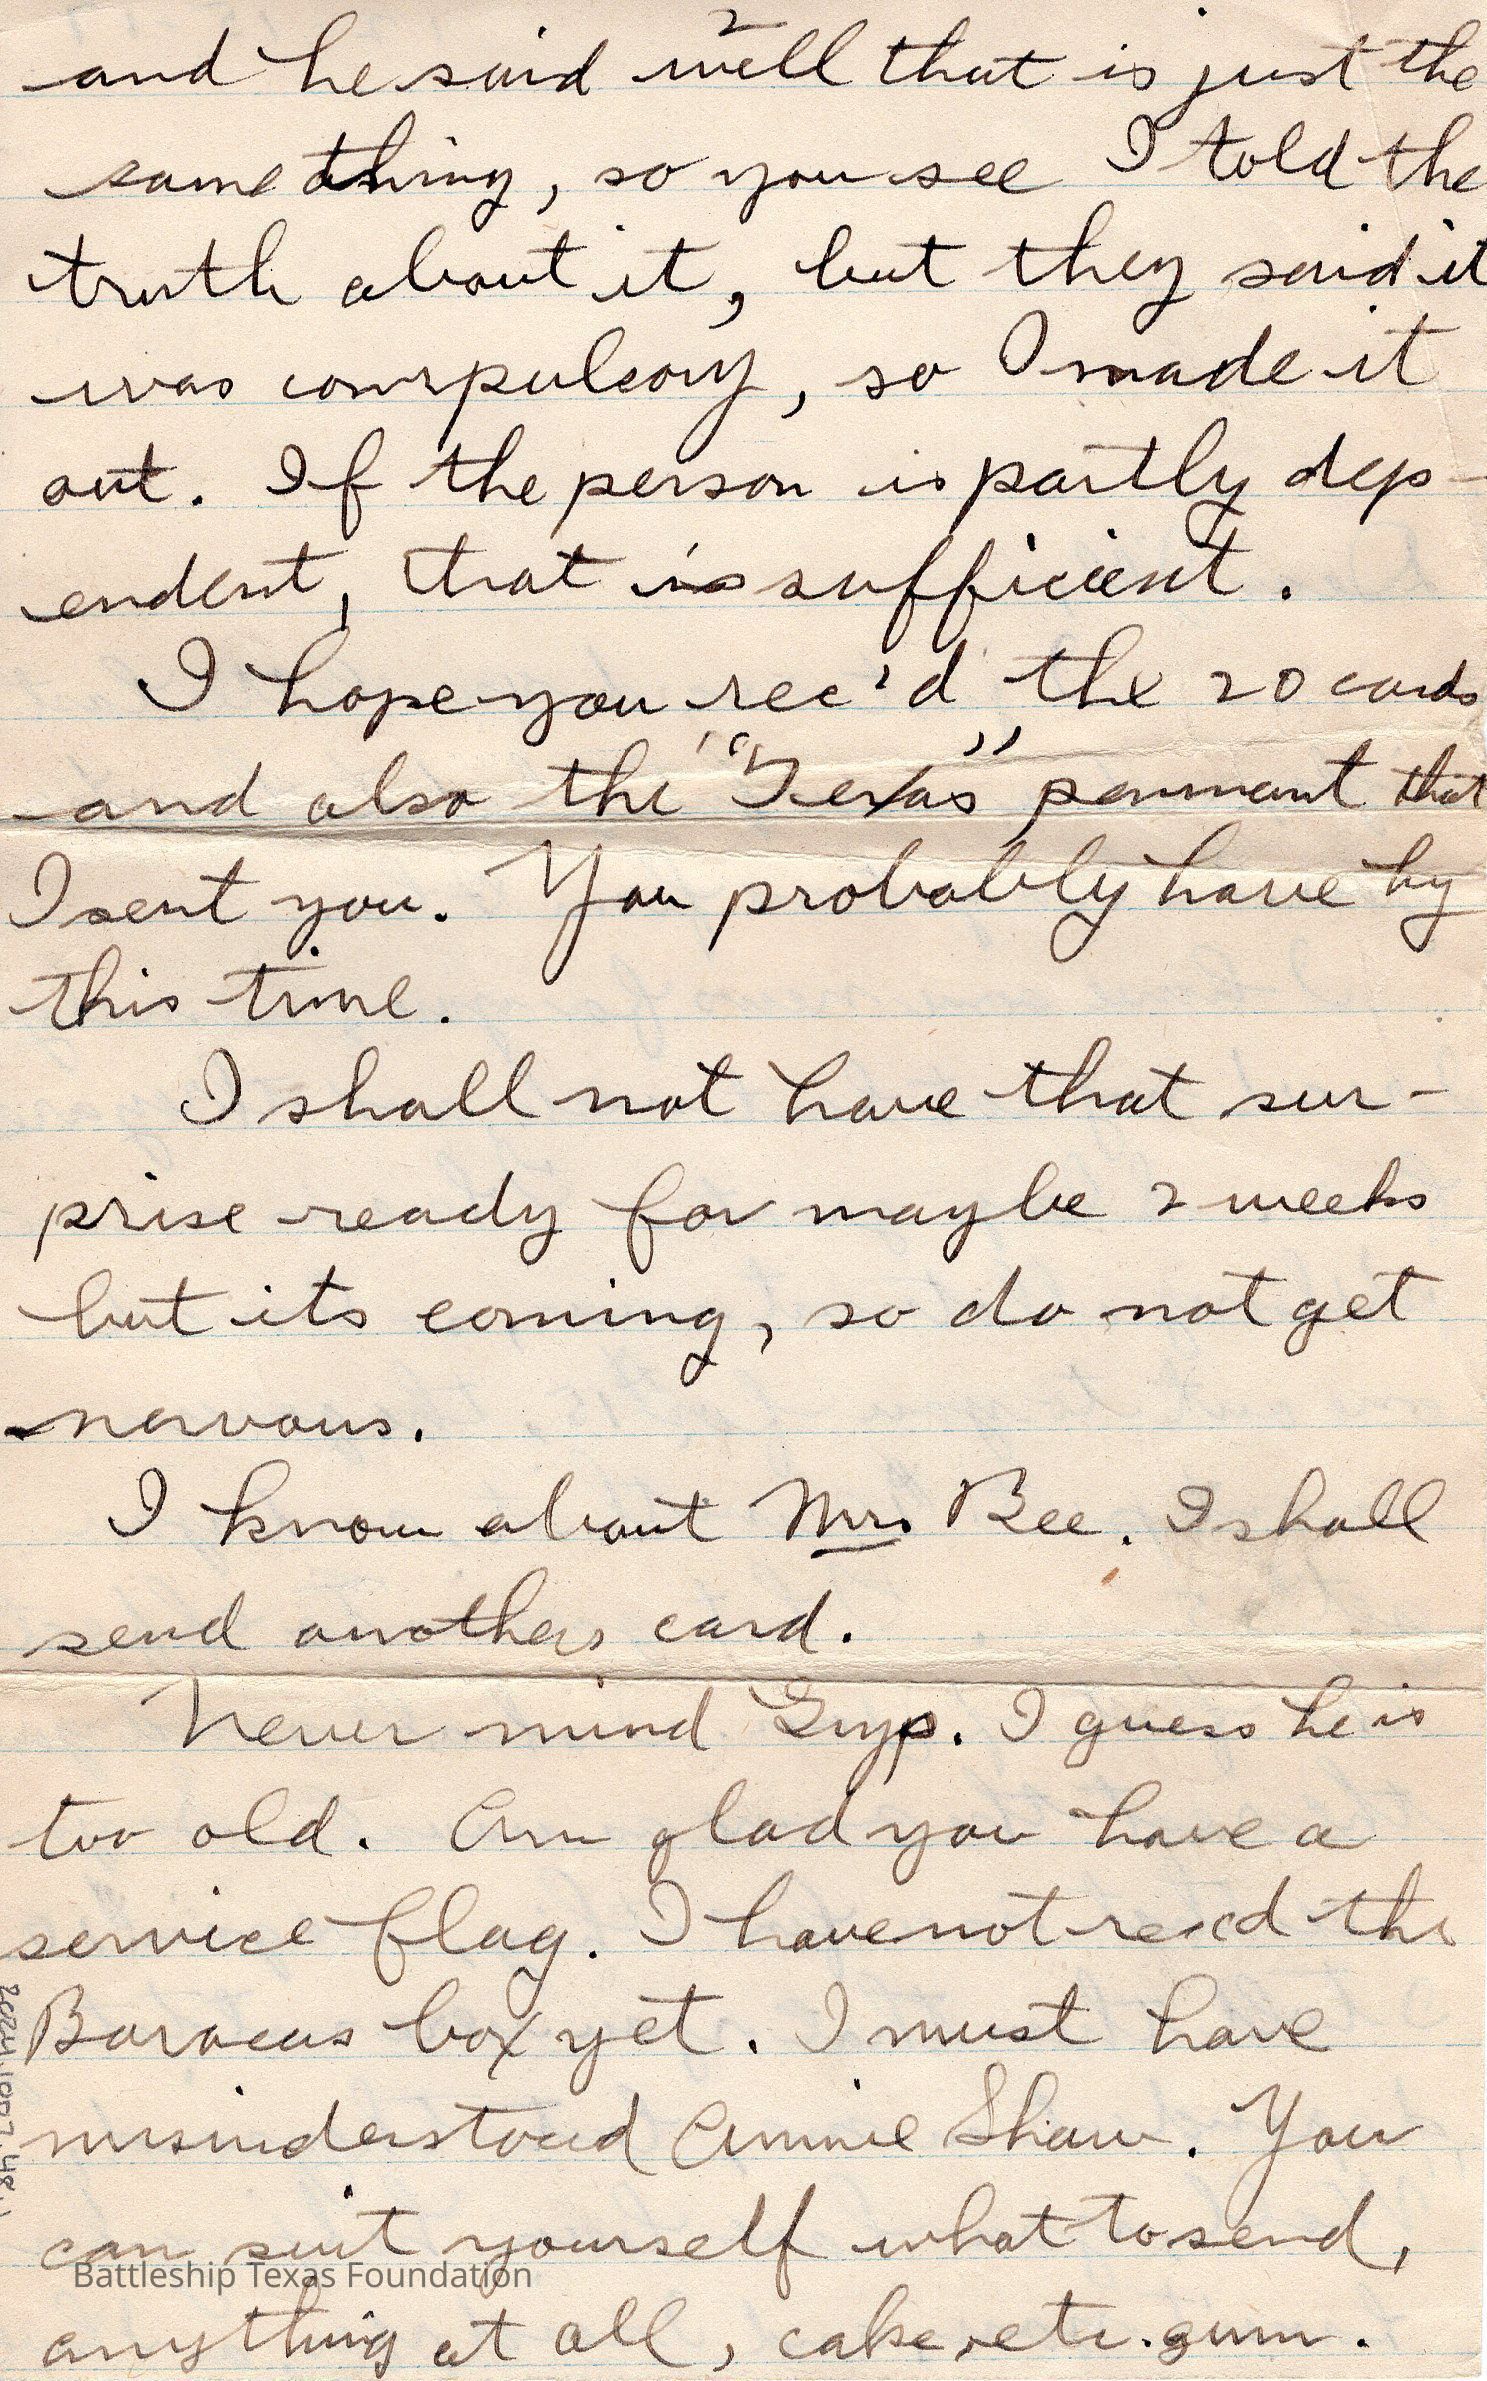 2
and he said well that is just the
same thing, so you see I told the
truth about it, but they said it
was compulsory, so I made it
out. If the person is partly dep-
endent, that is sufficient.
I hope you rec'd the 20 cards
and also the "Texas" pennant that
I sent you. You probably have by
this time.
I shall not have that sur-
prise ready for maybe 2 weeks
but its coming, so do not get
nervous.
I know about Mrs Bee. I shall
send another card.
Never mind Gyp. I guess he is
too old. Am glad you have a
service flag. I have not rec'd the
Baracas box yet. I must have
misunderstood Annie Shaw. You
can suit yourself what to send,
anything at all, cake, etc. gum.
Battleship Texas Foundation